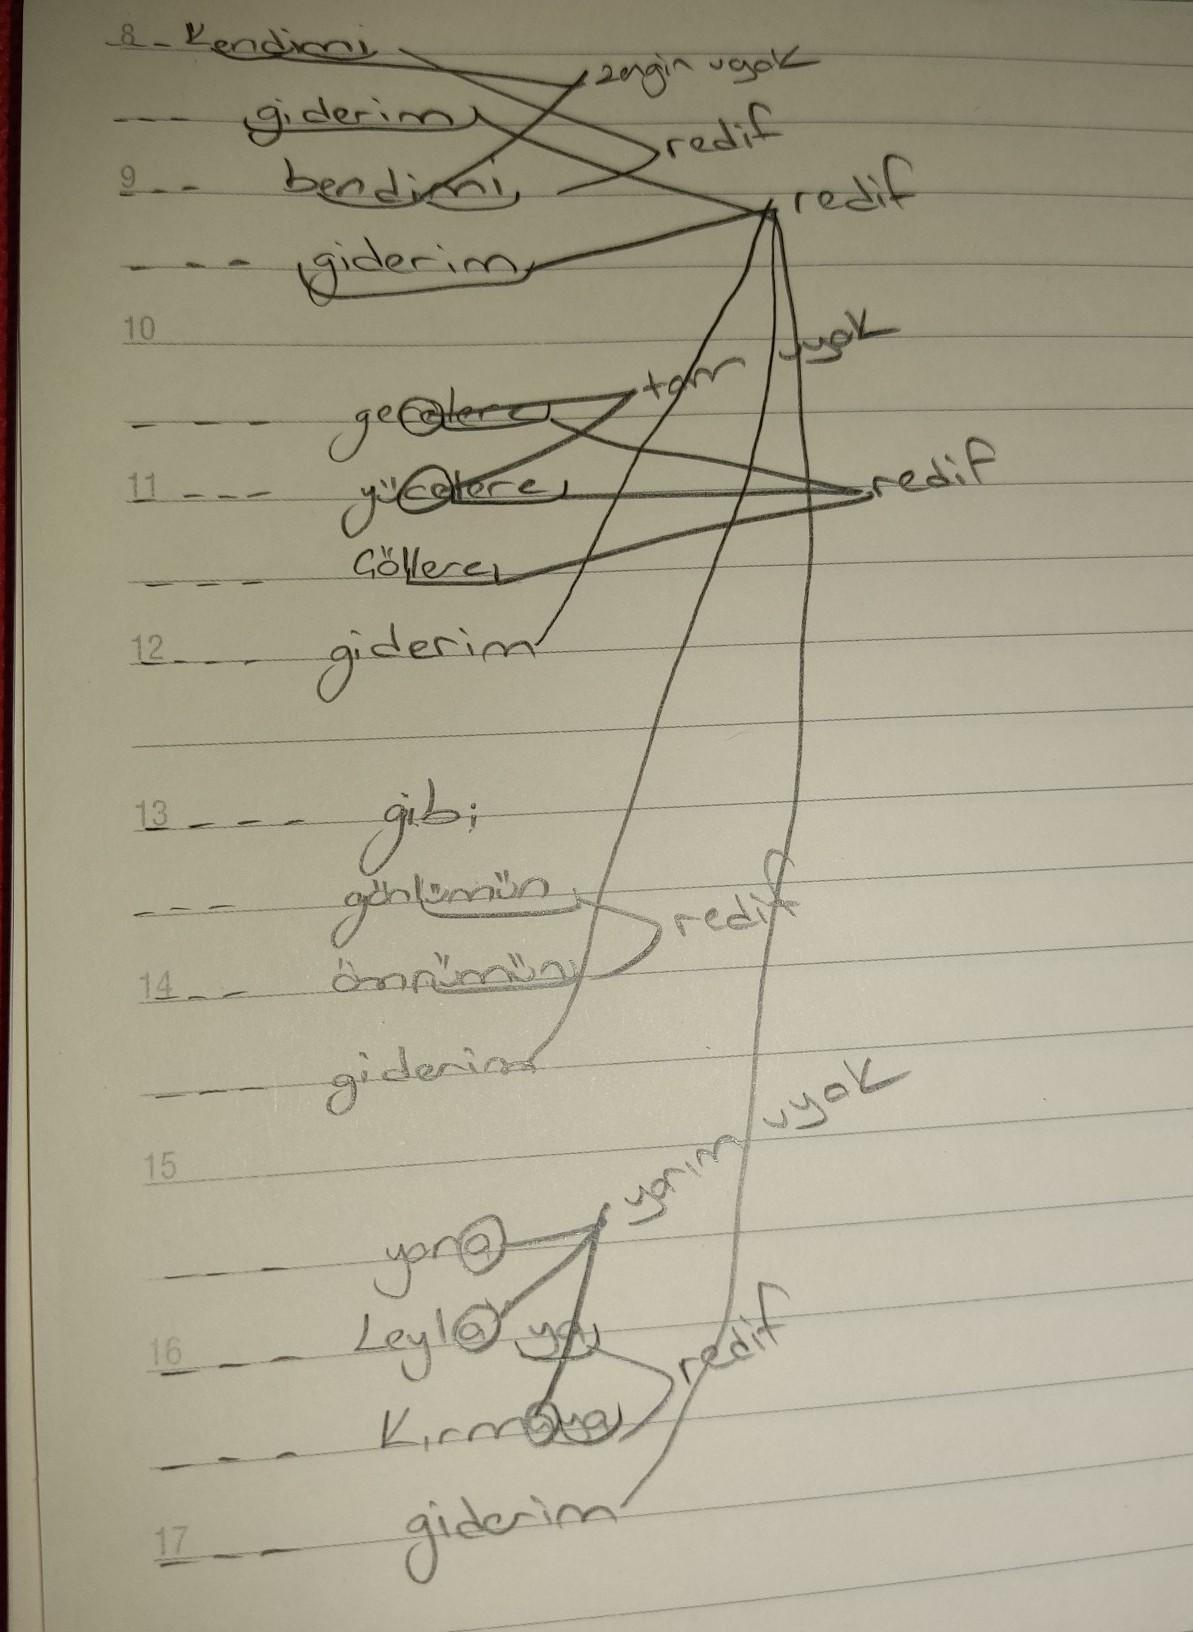 8 - Kendimi zengin uyak
- - - giderim redif
9 - - bendimi redif
- - - giderim
10 tam uyak
- - - gecelere
11 - - - yücelere redif
- - - Göllere
12 - - - giderim
13 - - - gibi
- - - gönlümün redif
14 - - ömrümün
- - - giderim
15 yarım uyak
- - - yara
16 - - - Leyla ya redif
- - - Kırmaya
17 - - - giderim